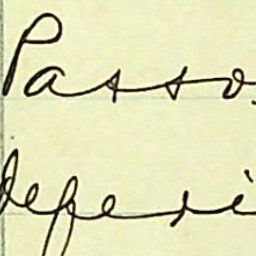 Passo
deferi